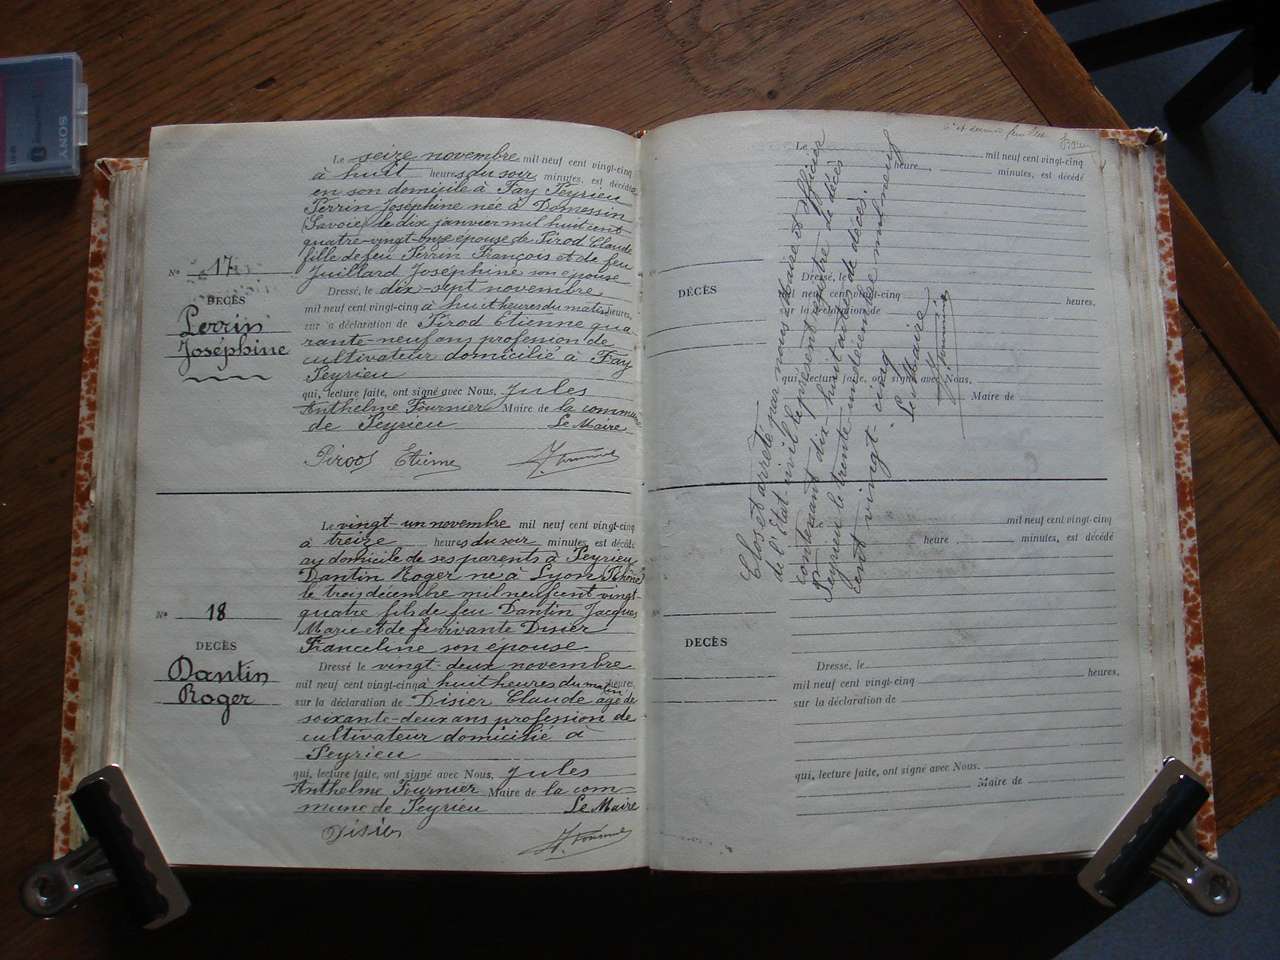 SONY
Le seize novembre mil neuf cent vingt-cinq
à huit heures du soir minutes, est décédée
en son domicile à Fay Peyrieu
Perrin Joséphine née à Domessin
(Savoie) le dix janvier mil huit cent
quatre-vingt-onze épouse de Pirod Claude
fille de feu Perrin François et de feu
Juillard Joséphine son épouse
Nº 17
DÉCÈS
Perrin
Joséphine
Dressé, le dix-sept novembre
mil neuf cent vingt-cinq à huit heures du matin heures,
sur la déclaration de Pirod Etienne qua
rante-neuf ans profession de
cultivateur domicilié à Fay
Peyrieu
qui, lecture faite, ont signé avec Nous, Jules
Anthelme Fournier Maire de la commune
de Peyrieu Le Maire
Pirod Etienne
Le vingt-un novembre mil neuf cent vingt-cinq
à treize heures du soir minutes, est décédé
au domicile de ses parents à Peyrieu
Dantin Roger né à Lyon (Rhône)
le trois décembre mil neuf cent vingt
quatre fils de feu Dantin Jacques
Marie et de vivante Disier
Franceline son épouse
Nº 18
DÉCÈS
Dantin
Roger
Dressé le vingt-deux novembre
mil neuf cent vingt-cinq à huit heures du matin heures,
sur la déclaration de Disier Claude agé de
soixante-deux ans profession de
cultivateur domicilié à
Peyrieu
qui, lecture faite, ont signé avec Nous, Jules
Anthelme Fournier Maire de la com-
mune de Peyrieu Le Maire
Disier
Le mil neuf cent vingt-cinq
heure minutes, est décédé
DÉCÈS
Dressé, le
mil neuf cent vingt-cinq heures,
sur la déclaration de
qui, lecture faite, ont signé avec Nous,
Maire de
Clos et arrêté par nous Maire et officier
de l'Etat-civil le présent registre de décès
contenant dix-huit actes de décès
Peyrieu le trente-un décembre mil neuf
cent vingt-cinq
Le Maire
mil neuf cent vingt-cinq
heure minutes, est décédé
DÉCÈS
Dressé, le
mil neuf cent vingt-cinq heures,
sur la déclaration de
qui, lecture faite, ont signé avec Nous.
Maire de